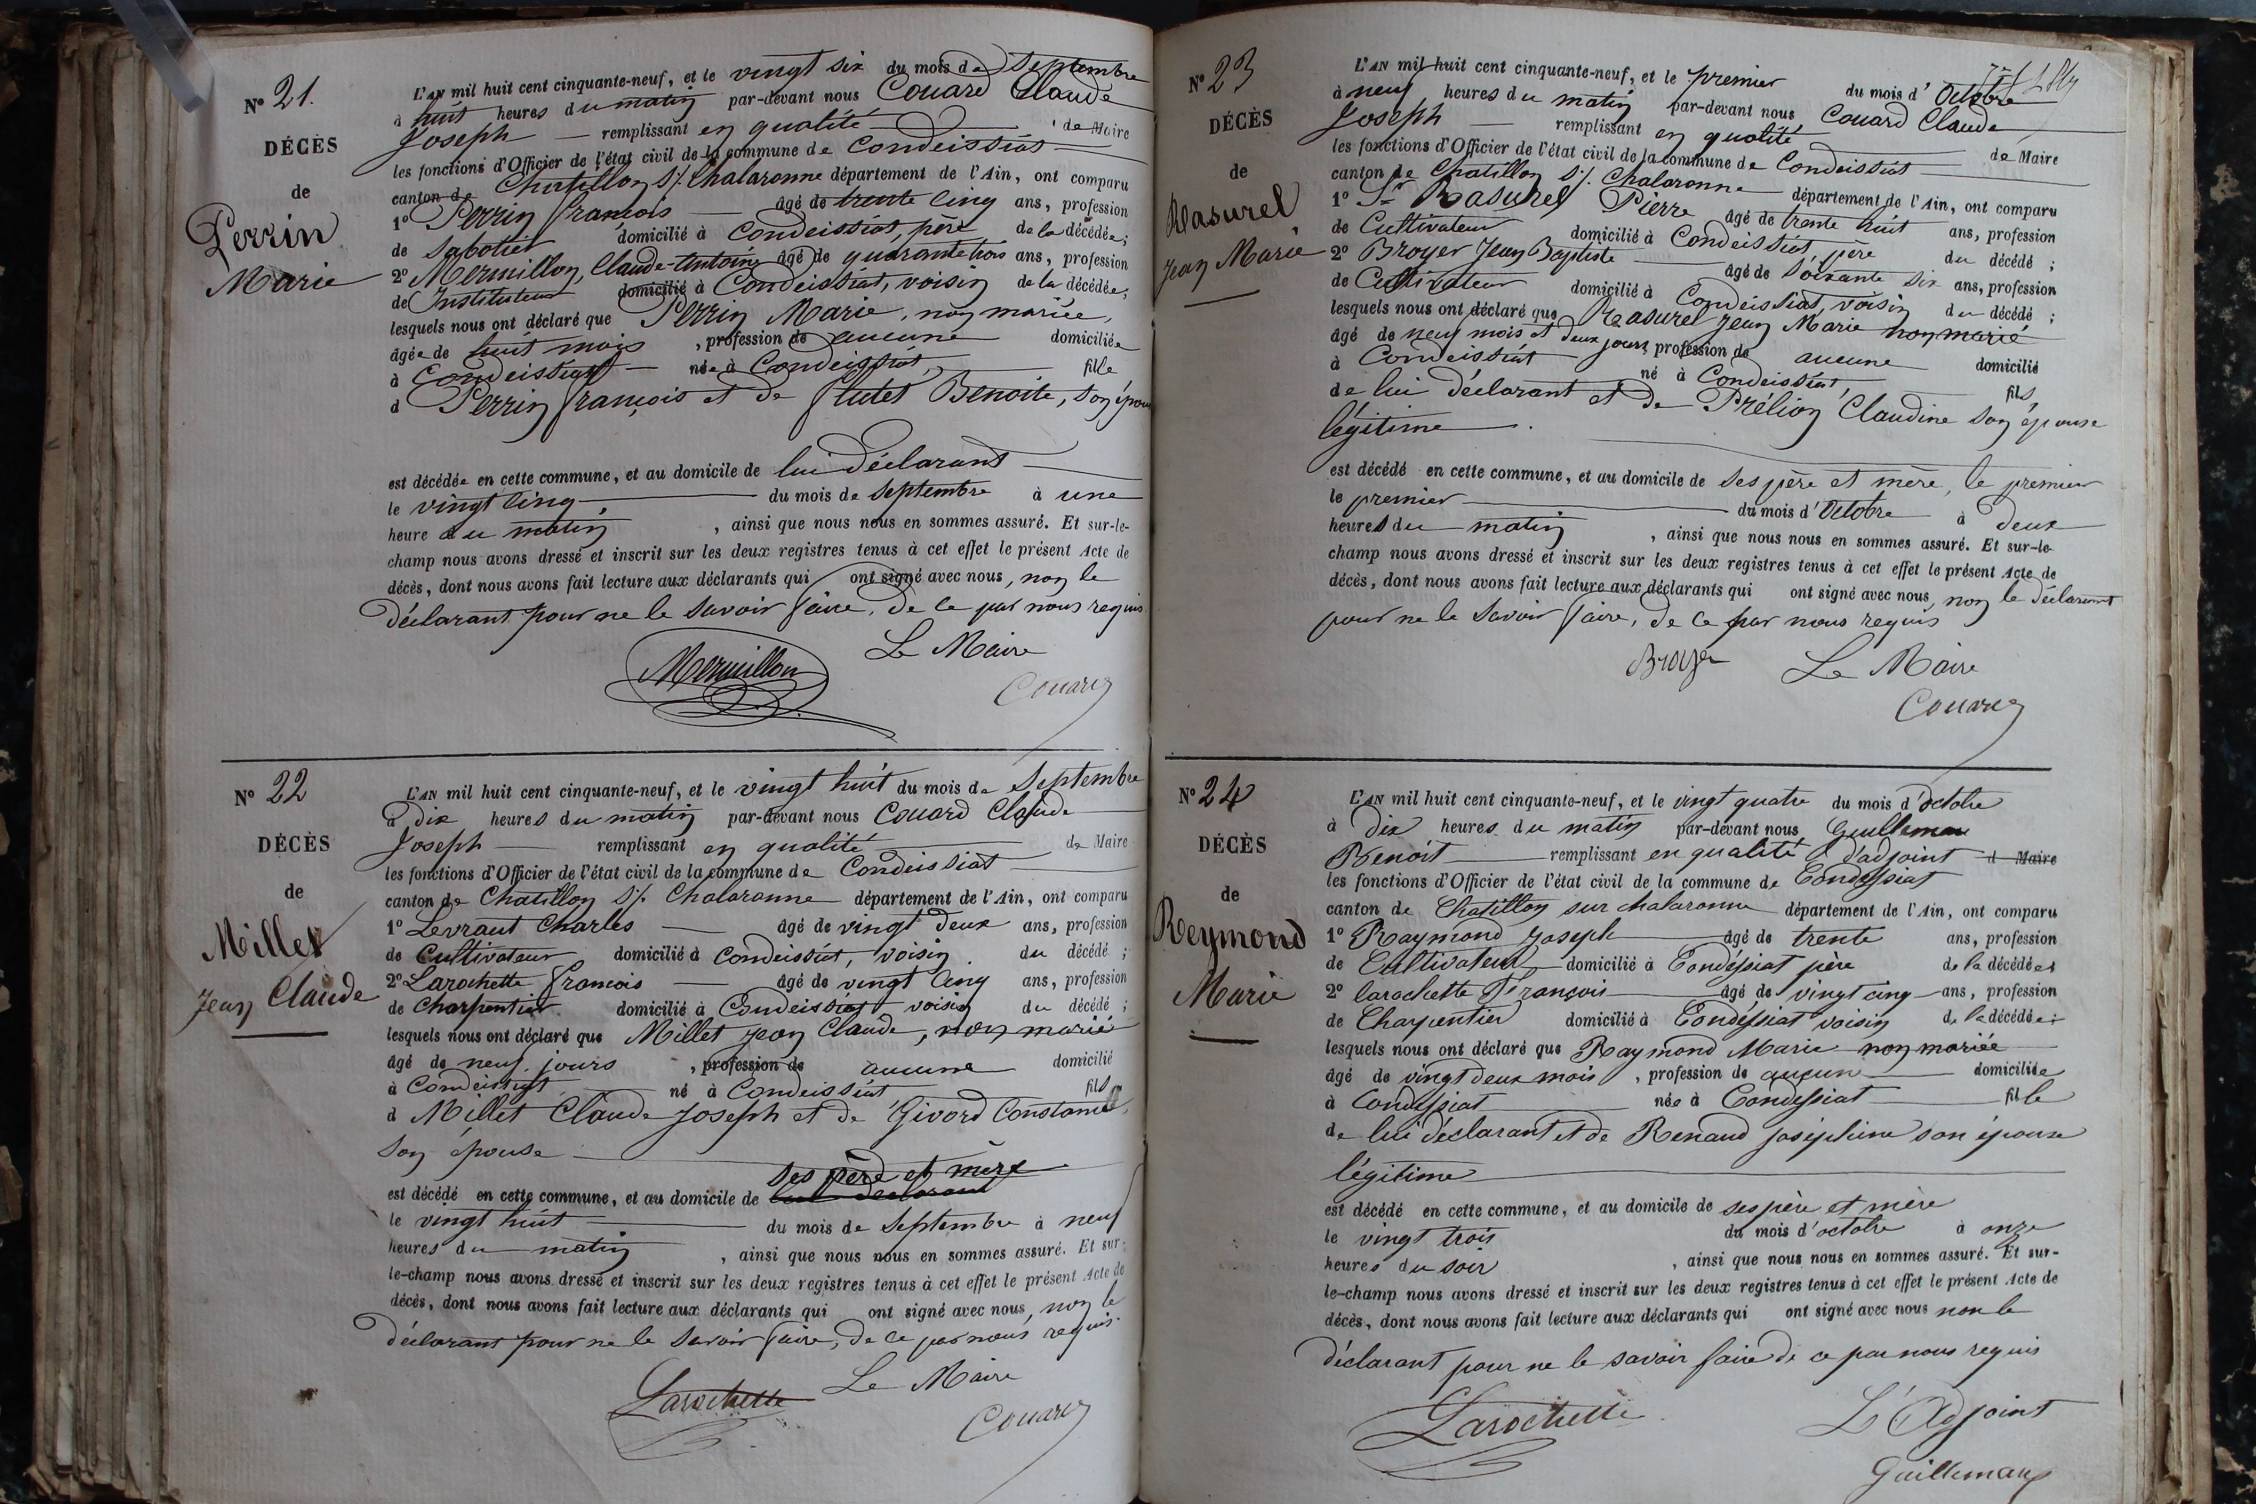 N° 21.
DÉCÈS
de
Perrin
Marie
L'AN mil huit cent cinquante-neuf, et le vingt six du mois de Septembre
à huit heures du matin par-devant nous Couard Claude
Joseph remplissant en qualité de Maire
les fonctions d'Officier de l'état civil de la commune de Condeissiat
canton de Chatillon s/. Chalaronne département de l'Ain, ont comparu
1° Perrin françois âgé de trente cinq ans, profession
de Sabotier domicilié à Condeissiat, père de la décédée;
2° Mermillon, Claude-Antoine âgé de quarante trois ans, profession
de Instituteur domicilié à Condeissiat, voisin de la décédée;
lesquels nous ont déclaré que Perrin Marie, non mariée,
âgée de huit mois, profession de aucune domiciliée
à Condeissiat née à Condeissiat, fille
d Perrin françois et de flutet Benoite, son épouse
est décédée en cette commune, et au domicile de lui déclarant
le vingt cinq du mois de Septembre à une
heure du matin, ainsi que nous nous en sommes assuré. Et sur-le-
champ nous avons dressé et inscrit sur les deux registres tenus à cet effet le présent Acte de
décès, dont nous avons fait lecture aux déclarants qui ont signé avec nous, non le
déclarant pour ne le savoir faire, de ce par nous requis
Mermillon Le Maire
Couard
N° 22
DÉCÈS
de
Millet
Jean Claude
L'AN mil huit cent cinquante-neuf, et le vingt huit du mois de Septembre
à dix heures du matin par-devant nous Couard Claude
Joseph remplissant en qualité de Maire
les fonctions d'Officier de l'état civil de la commune de Condeissiat
canton de Chatillon s/. Chalaronne département de l'Ain, ont comparu
1° Levraut Charles âgé de vingt deux ans, profession
de Cultivateur domicilié à Condeissiat, voisin du décédé;
2° Larochette françois âgé de vingt cinq ans, profession
de Charpentier domicilié à Condeissiat voisin du décédé;
lesquels nous ont déclaré que Millet Jean Claude, non marié
âgé de neuf jours, profession de aucune domicilié
à Condeissiat né à Condeissiat fils
d Millet Claude Joseph et de Givord Constance
son épouse
ses père et mère
est décédé en cette commune, et au domicile de lui déclarant
le vingt huit du mois de Septembre à neuf
heures du matin, ainsi que nous nous en sommes assuré. Et sur-
le-champ nous avons dressé et inscrit sur les deux registres tenus à cet effet le présent Acte de
décès, dont nous avons fait lecture aux déclarants qui ont signé avec nous, non le
déclarant pour ne le savoir faire, de ce par nous requis.
Larochette Le Maire
Couard
N° 23
DÉCÈS
de
Rasurel
Jean Marie
L'AN mil huit cent cinquante-neuf, et le premier du mois d'Octobre
à neuf heures du matin par-devant nous Couard Claude
Joseph remplissant en qualité de Maire
les fonctions d'Officier de l'état civil de la commune de Condeissiat
canton de Chatillon s/. Chalaronne département de l'Ain, ont comparu
1° Rasurel Pierre âgé de trente huit ans, profession
de Cultivateur domicilié à Condeissiat père du décédé;
2° Broyer Jean Baptiste âgé de soixante six ans, profession
de Cultivateur domicilié à Condeissiat, voisin du décédé;
lesquels nous ont déclaré que Rasurel Jean Marie non marié
âgé de neuf mois et deux jours, profession de aucune domicilié
à Condeissiat né à Condeissiat, fils
de lui déclarant et de Prélion Claudine son épouse
légitime.
est décédé en cette commune, et au domicile de ses père et mère, le premier
le premier du mois d'Octobre à deux
heures du matin, ainsi que nous nous en sommes assuré. Et sur-le-
champ nous avons dressé et inscrit sur les deux registres tenus à cet effet le présent Acte de
décès, dont nous avons fait lecture aux déclarants qui ont signé avec nous, non le déclarant
pour ne le savoir faire, de ce par nous requis
Broyer Le Maire
Couard
N° 24
DÉCÈS
de
Reymond
Marie
L'AN mil huit cent cinquante-neuf, et le vingt quatre du mois d'octobre
à dix heures du matin par-devant nous Guillemau
Benoit remplissant en qualité d'adjoint d Maire
les fonctions d'Officier de l'état civil de la commune de Condessiat
canton de Chatillon sur chalaronne département de l'Ain, ont comparu
1° Raymond Joseph âgé de trente ans, profession
de Cultivateur domicilié à Condéssiat père de la décédée;
2° larochette François âgé de vingt cinq ans, profession
de Charpentier domicilié à Condéssiat voisin de la décédée;
lesquels nous ont déclaré que Raymond Marie non mariée
âgé de vingt deux mois, profession de aucune domiciliée
à Condessiat née à Condessiat fille
de lui déclarant et de Renaud joséphine son épouse
légitime
est décédé en cette commune, et au domicile de ses père et mère
le vingt trois du mois d'octobre à onze
heures du soir, ainsi que nous nous en sommes assuré. Et sur-
le-champ nous avons dressé et inscrit sur les deux registres tenus à cet effet le présent Acte de
décès, dont nous avons fait lecture aux déclarants qui ont signé avec nous non le
déclarant pour ne le savoir faire de ce par nous requis
Larochette L'Adjoint
Guillemau